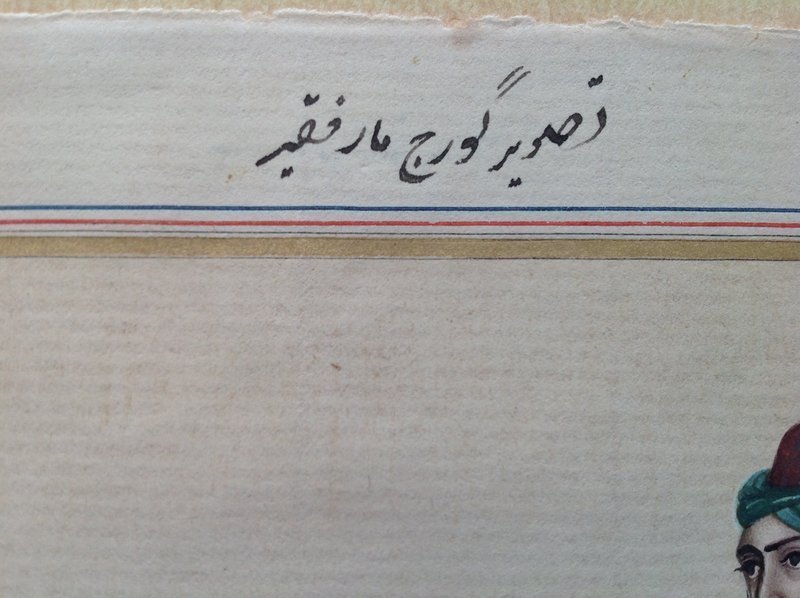 تصویر گورج مار فقیر